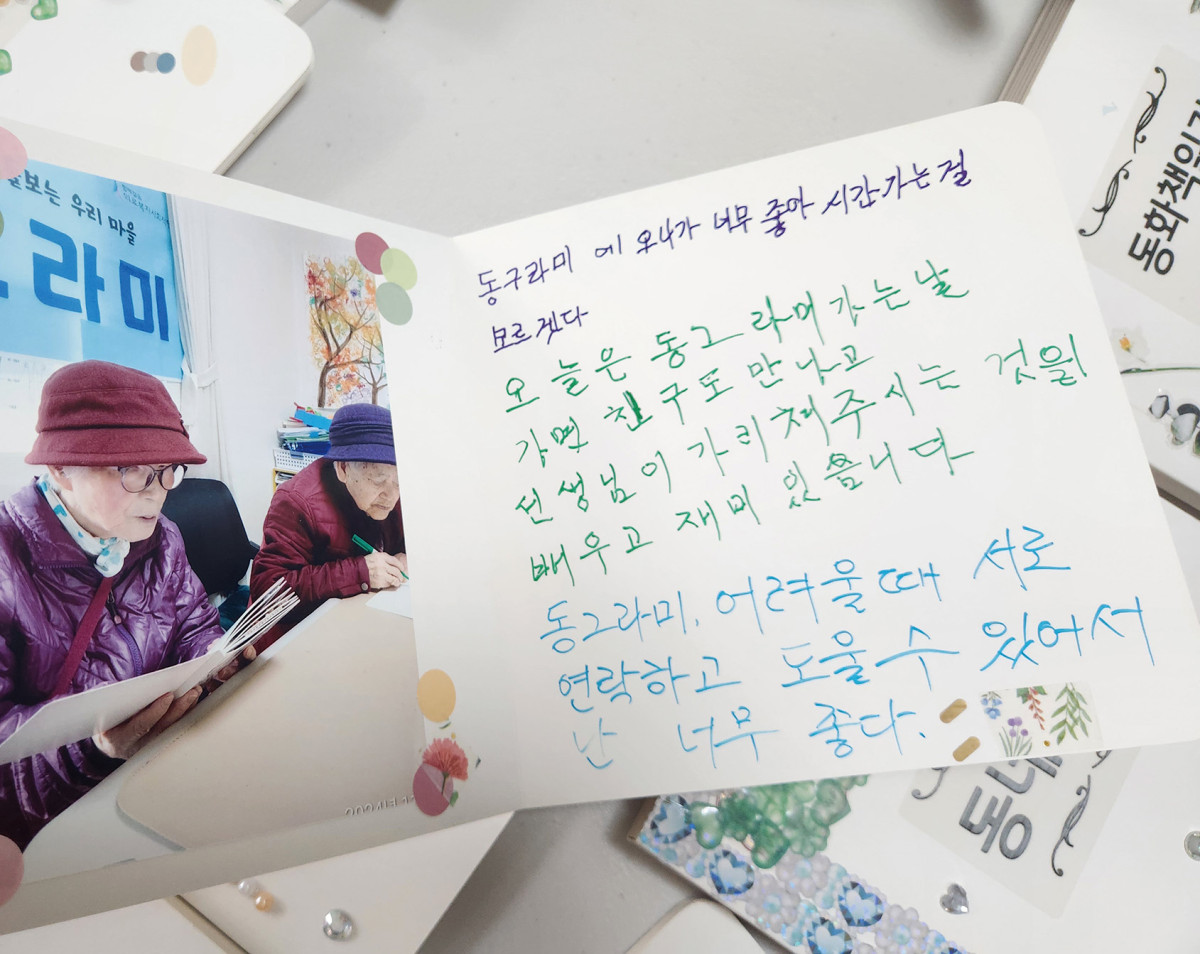 보는 우리 마을
라미
동구라미 에 오니가 너무 좋아 시간가는걸
모르겠다
오늘은 동그라미가는날
가면 친구도 만나고
선생님이 가리쳐주시는 것을
배우고 재미있씁니다
동그라미. 어려울때 서로
연락하고 도울수 있어서
난 너무 좋다.
동화책읽
동네